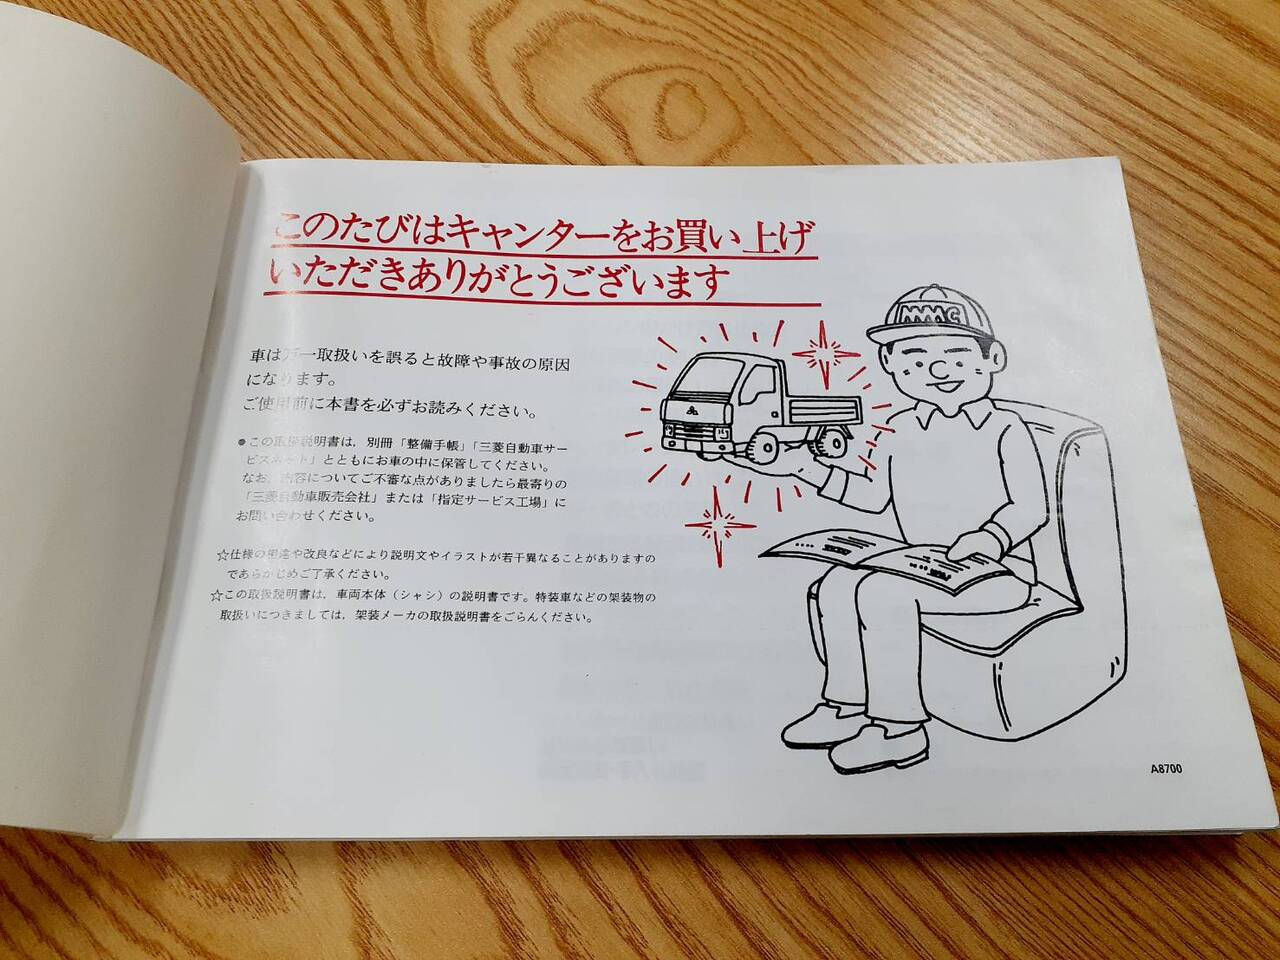 このたびはキャンターをお買い上げ
いただきありがとうございます
車は万一取扱いを誤ると故障や事故の原因
になります。
ご使用前に本書を必ずお読みください。
●この取扱説明書は，別冊「整備手帳」「三菱自動車サー
ビスネット」とともにお車の中に保管してください。
なお，内容についてご不審な点がありましたら最寄りの
「三菱自動車販売会社」または「指定サービス工場」に
お問い合わせください。
☆仕様の用途や改良などにより説明文やイラストが若干異なることがありますの
であらかじめご了承ください。
☆この取扱説明書は，車両本体（シャシ）の説明書です。特装車などの架装物の
取扱いにつきましては，架装メーカの取扱説明書をごらんください。
MMC
A8700